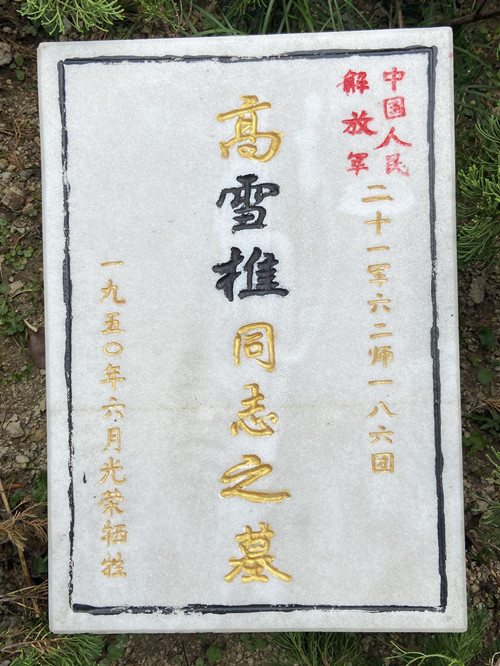 中国人民
解放军
二十一军六二师一八六团
高雪推同志之墓
一九五〇年六月光荣牺牲